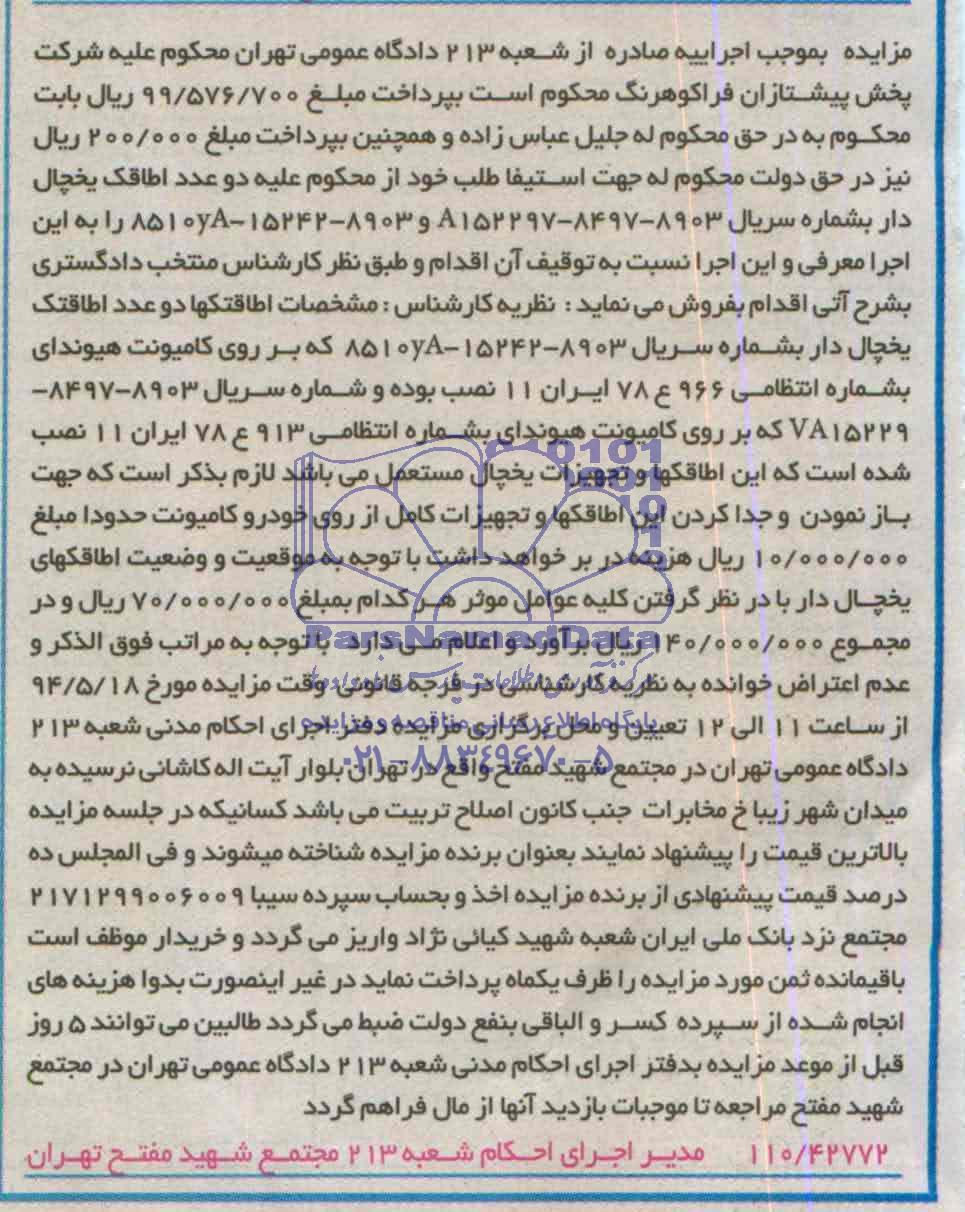 مزایده بموجب اجراییه صادره از شعبه ۲۱۳ دادگاه عمومی تهران محکوم علیه شرکت
پخش پیشتازان فراکوهرنگ محکوم است بپرداخت مبلغ ۹۹/۵۷۶/۷۰۰ ریال بابت
محکوم به در حق محکوم له جلیل عباس زاده و همچنین بپرداخت مبلغ ۲۰۰/۰۰۰ ریال
نیز در حق دولت محکوم له جهت استیفا طلب خود از محکوم علیه دو عدد اطاقک یخچال
دار بشماره سریال A۱۵۲۲۹۷-۸۴۹۷-۸۹۰۳ و ۸۵۱۰yA-۱۵۲۴۲-۸۹۰۳ را به این
اجرا معرفی و این اجرا نسبت به توقیف آن اقدام و طبق نظر کارشناس منتخب دادگستری
بشرح آتی اقدام بفروش می نماید : نظریه کارشناس : مشخصات اطاقتکها دو عدد اطاقتک
یخچال دار بشماره سریال ۸۵۱۰yA-۱۵۲۴۲-۸۹۰۳ که بر روی کامیونت هیوندای
بشماره انتظامی ۹۶۶ ع ۷۸ ایران ۱۱ نصب بوده و شماره سریال ۸۹۰۳-۸۴۹۷-
VA۱۵۲۲۹ که بر روی کامیونت هیوندای بشماره انتظامی ۹۱۳ ع ۷۸ ایران ۱۱ نصب
شده است که این اطاقکها و تجهیزات یخچال مستعمل می باشد لازم بذکر است که جهت
باز نمودن و جدا کردن این اطاقکها و تجهیزات کامل از روی خودرو کامیونت حدودا مبلغ
۱۰/۰۰۰/۰۰۰ ریال هزینه در بر خواهد داشت با توجه به موقعیت و وضعیت اطاقکهای
یخچال دار با در نظر گرفتن کلیه عوامل موثر هر کدام بمبلغ ۷۰/۰۰۰/۰۰۰ ریال و در
مجموع ۱۴۰/۰۰۰/۰۰۰ ریال برآورد و اعلام می دارد. با توجه به مراتب فوق الذکر و
عدم اعتراض خوانده به نظریه کارشناسی در فرجه قانونی وقت مزایده مورخ ۹۴/۵/۱۸
از ساعت ۱۱ الی ۱۲ تعیین و محل برگزاری مزایده دفتر اجرای احکام مدنی شعبه ۲۱۳
دادگاه عمومی تهران در مجتمع شهید مفتح واقع در تهران بلوار آیت اله کاشانی نرسیده به
میدان شهر زیبا خ مخابرات جنب کانون اصلاح تربیت می باشد کسانیکه در جلسه مزایده
بالاترین قیمت را پیشنهاد نمایند بعنوان برنده مزایده شناخته میشوند و فی المجلس ده
درصد قیمت پیشنهادی از برنده مزایده اخذ و بحساب سپرده سیبا ۲۱۷۱۲۹۹۰۰۶۰۰۹
مجتمع نزد بانک ملی ایران شعبه شهید کیائی نژاد واریز می گردد و خریدار موظف است
باقیمانده ثمن مورد مزایده را ظرف یکماه پرداخت نماید در غیر اینصورت بدوا هزینه های
انجام شده از سپرده کسر و الباقی بنفع دولت ضبط می گردد طالبین می توانند ۵ روز
قبل از موعد مزایده بدفتر اجرای احکام مدنی شعبه ۲۱۳ دادگاه عمومی تهران در مجتمع
شهید مفتح مراجعه تا موجبات بازدید آنها از مال فراهم گردد
۱۱۰/۴۲۷۷۲ مدیر اجرای احکام شعبه ۲۱۳ مجتمع شهید مفتح تهران
ParsNamadData
پایگاه اطلاع رسانی مناقصه و مزایده
۰۲۱-۸۸۳۴۹۶۷۰-۵